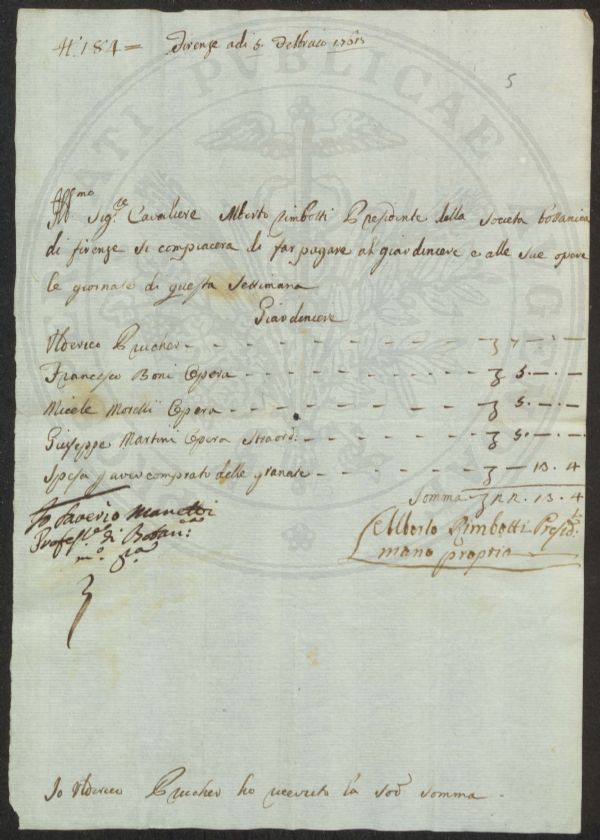 N.° 184 =
Firenze adi 5. Febbraio
5
Ill.mo Sig.re Cavaliere Alberto Rimbotti Presidente della Societa bottanica
di firenze si compiacera di far pagare al giardiniere e alle sue opere
le giornate di questa settimana
Giardiniere
Vlderico Prucher - - - - - - 7 - . -
Francesco Boni Opera - - - - - - 5. - . -
Micele Morelli Opera - - - - - - 5. - . -
Giuseppe Martini Opera Straord: - - - - 5. - . -
Spesa p aver comprato delle granate - - - - - 13. 4
Somma 22. 13. 4
Io Saverio Manetti
Profess.re di Botan.ca
m.o p.a
Alberto Rimbotti Presid.te
mano propria
Io Vlderico Prucher ho riceuto la sod.a somma -
PUBLICAE